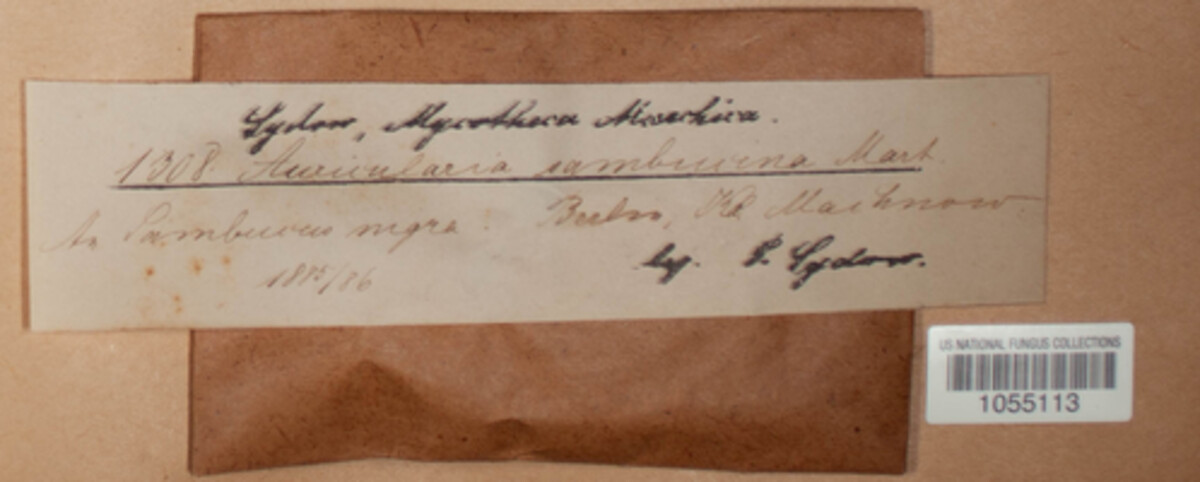 Sydow, Mycotheca Marchica.
1308. Auricularia sambucina Mart.
An Sambucus nigra. Berlin, Kl. Machnow
1885/86
leg. P. Sydow.
US NATIONAL FUNGUS COLLECTIONS
1055113